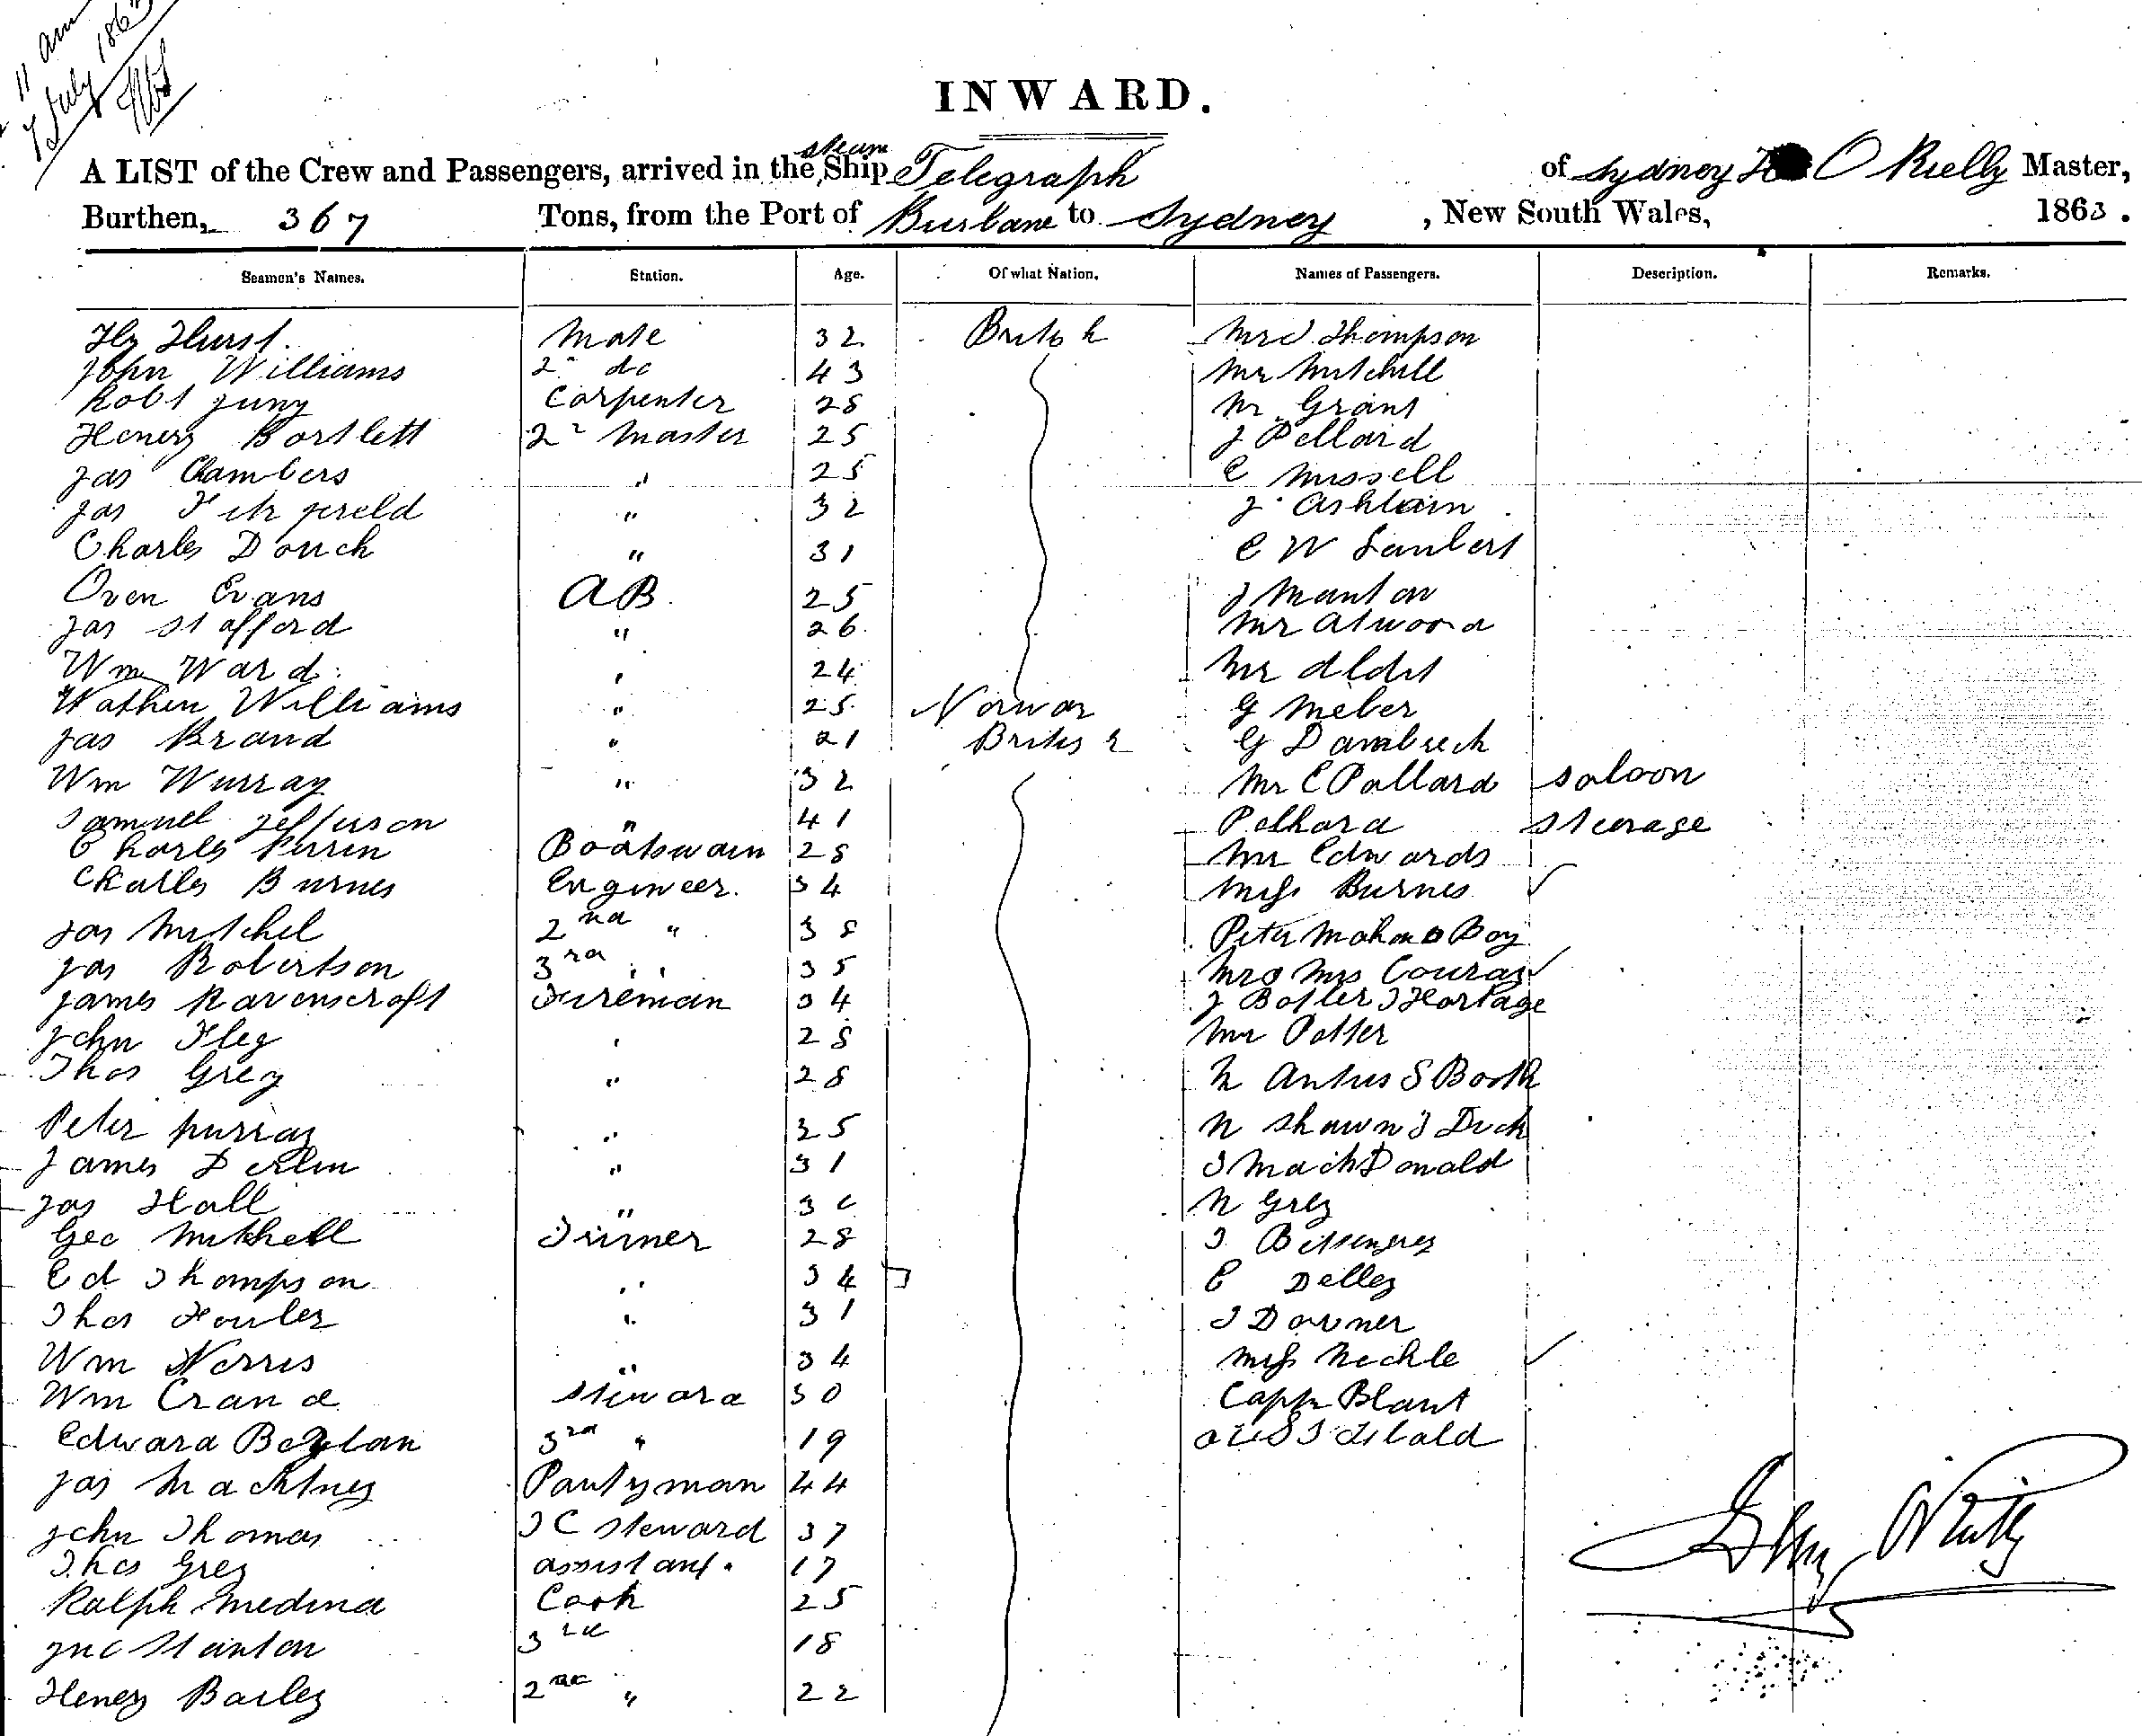 11 am
7 July 1863
INWARD.
A LIST of the Crew and Passengers, arrived in the steam Ship Telegraph of Sydney O Rielly Master,
Burthen, 367 Tons, from the Port of Brisbane to Sydney, New South Wales, 1863.
Seamen's Names. Station. Age. Of what Nation. Names of Passengers. Description. Remarks.
Hy Hurst. Mate 32 British Mr J Thompson
John Williams 2d do 43 Mr Mitchell
Robt Jung Carpenter 28 Mr Grant
Henery Bartlett 2d Master 25 J Pellard
Jas Chambers " 25 C Missell
Jas " 32 J Ashlain
Charles Douch " 31 C W Lambert
Owen Evans AB. 25 J Manton
Jas Stafford " 26 Mr Atwood
Wm Ward " 24 Mr
Wathen Williams " 25 Norway G Meber
Jas Brand " 21 British G
Wm Wurray " 32 Mr C Pollard saloon
Samuel Jefferson " 41 steerage
Charles Perrin Boatswain 28 Mr Edwards
Charles Burnes Engineer. 34 Miss Burnes
Jas Mitchel 2nd " 38 Peter Boy
Jas Robertson 3rd " 35 Mr & Mrs
James Ravenscroft Fireman 34 J Botler
John Fleg " 28 Mr Potter
Thos Grey " 28 S Booth
Peter Murray " 35
James " 31 J MackDonald
Jas Hall " 30 N Grey
Geo Mitchell Trimer 28 J
Ed Thompson " 34 C Delley
Thos Fowler " 31 J Downer
Wm Norris " 34 Miss Meckle
Wm Crand Steward 30 Capt Blant
Edward Boylan 3rd " 19
Jas Macktney Pantyman 44
John Thomas Steward 37
Thos Grey assistant. 17
Ralph Medina Cook 25
Jno Stanton 3rd 18
Henery Barley 2nd " 22